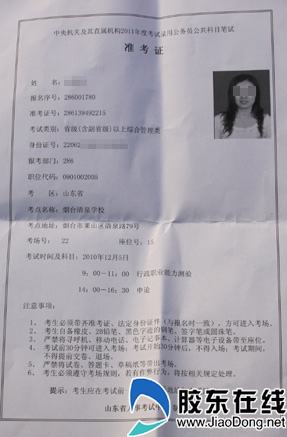 中央机关及其直属机构2011年度考试录用公务员公共科目笔试
准考证
姓名:
报名序号:286001780
准考证号:286139492215
考试类别:省级(含副省级)以上综合管理类
身份证号:22062
报考部门:286
职位代码:0901002005
考区:山东省
考点名称:烟台清泉学校
考点地址:烟台市莱山区清泉路79号
考场号:22 座位号:15
考试时间及科目:2010年12月5日
9:00-11:00 行政职业能力测验
14:00-16:30 申论
注意事项:
1、考生必须带齐准考证、法定身份证件(与报名时一致),方可进入考场。
2、考生自备橡皮、2B铅笔、黑色字迹的钢笔、签字笔或圆珠笔。
3、严禁将寻呼机、移动电话、电子记事本、计算器等电子设备带至座位。
4、考试前30分钟可进入考场;考试开始30分钟后,不得入场;考试期间,
不得提前交卷、退场。
5、严禁将试卷、答题卡、草稿纸等带出考场。
6、考生必须遵守考场规则,若有作弊行为,将按相关规定处理。
提示:考生应在考试前
山东省人事考试
胶东在线
www.JiaoDong.net